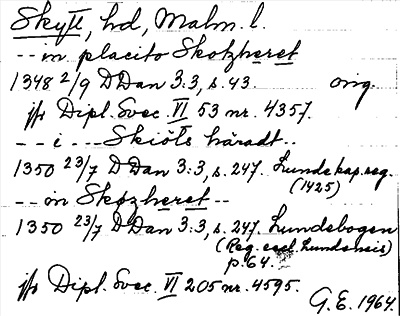 Skytt, hd, Malm. l.
-- in placito Skotzheret
1348 2/9 DDan 3:3, s. 43. orig.
jfr Dipl. Svec. VI 53 nr. 4357.
-- i --- Skiöts häradt..
1350 23/7 DDan 3:3, s. 247. Lunds kap. reg.
(1425)
-- in Skøzheret --
1350 23/7 DDan 3:3, s. 247. Lundebogen
(Reg. eccl. Lundensis)
p. 64.
jfr Dipl. Svec. VI 205 nr. 4595.
G.E. 1964.